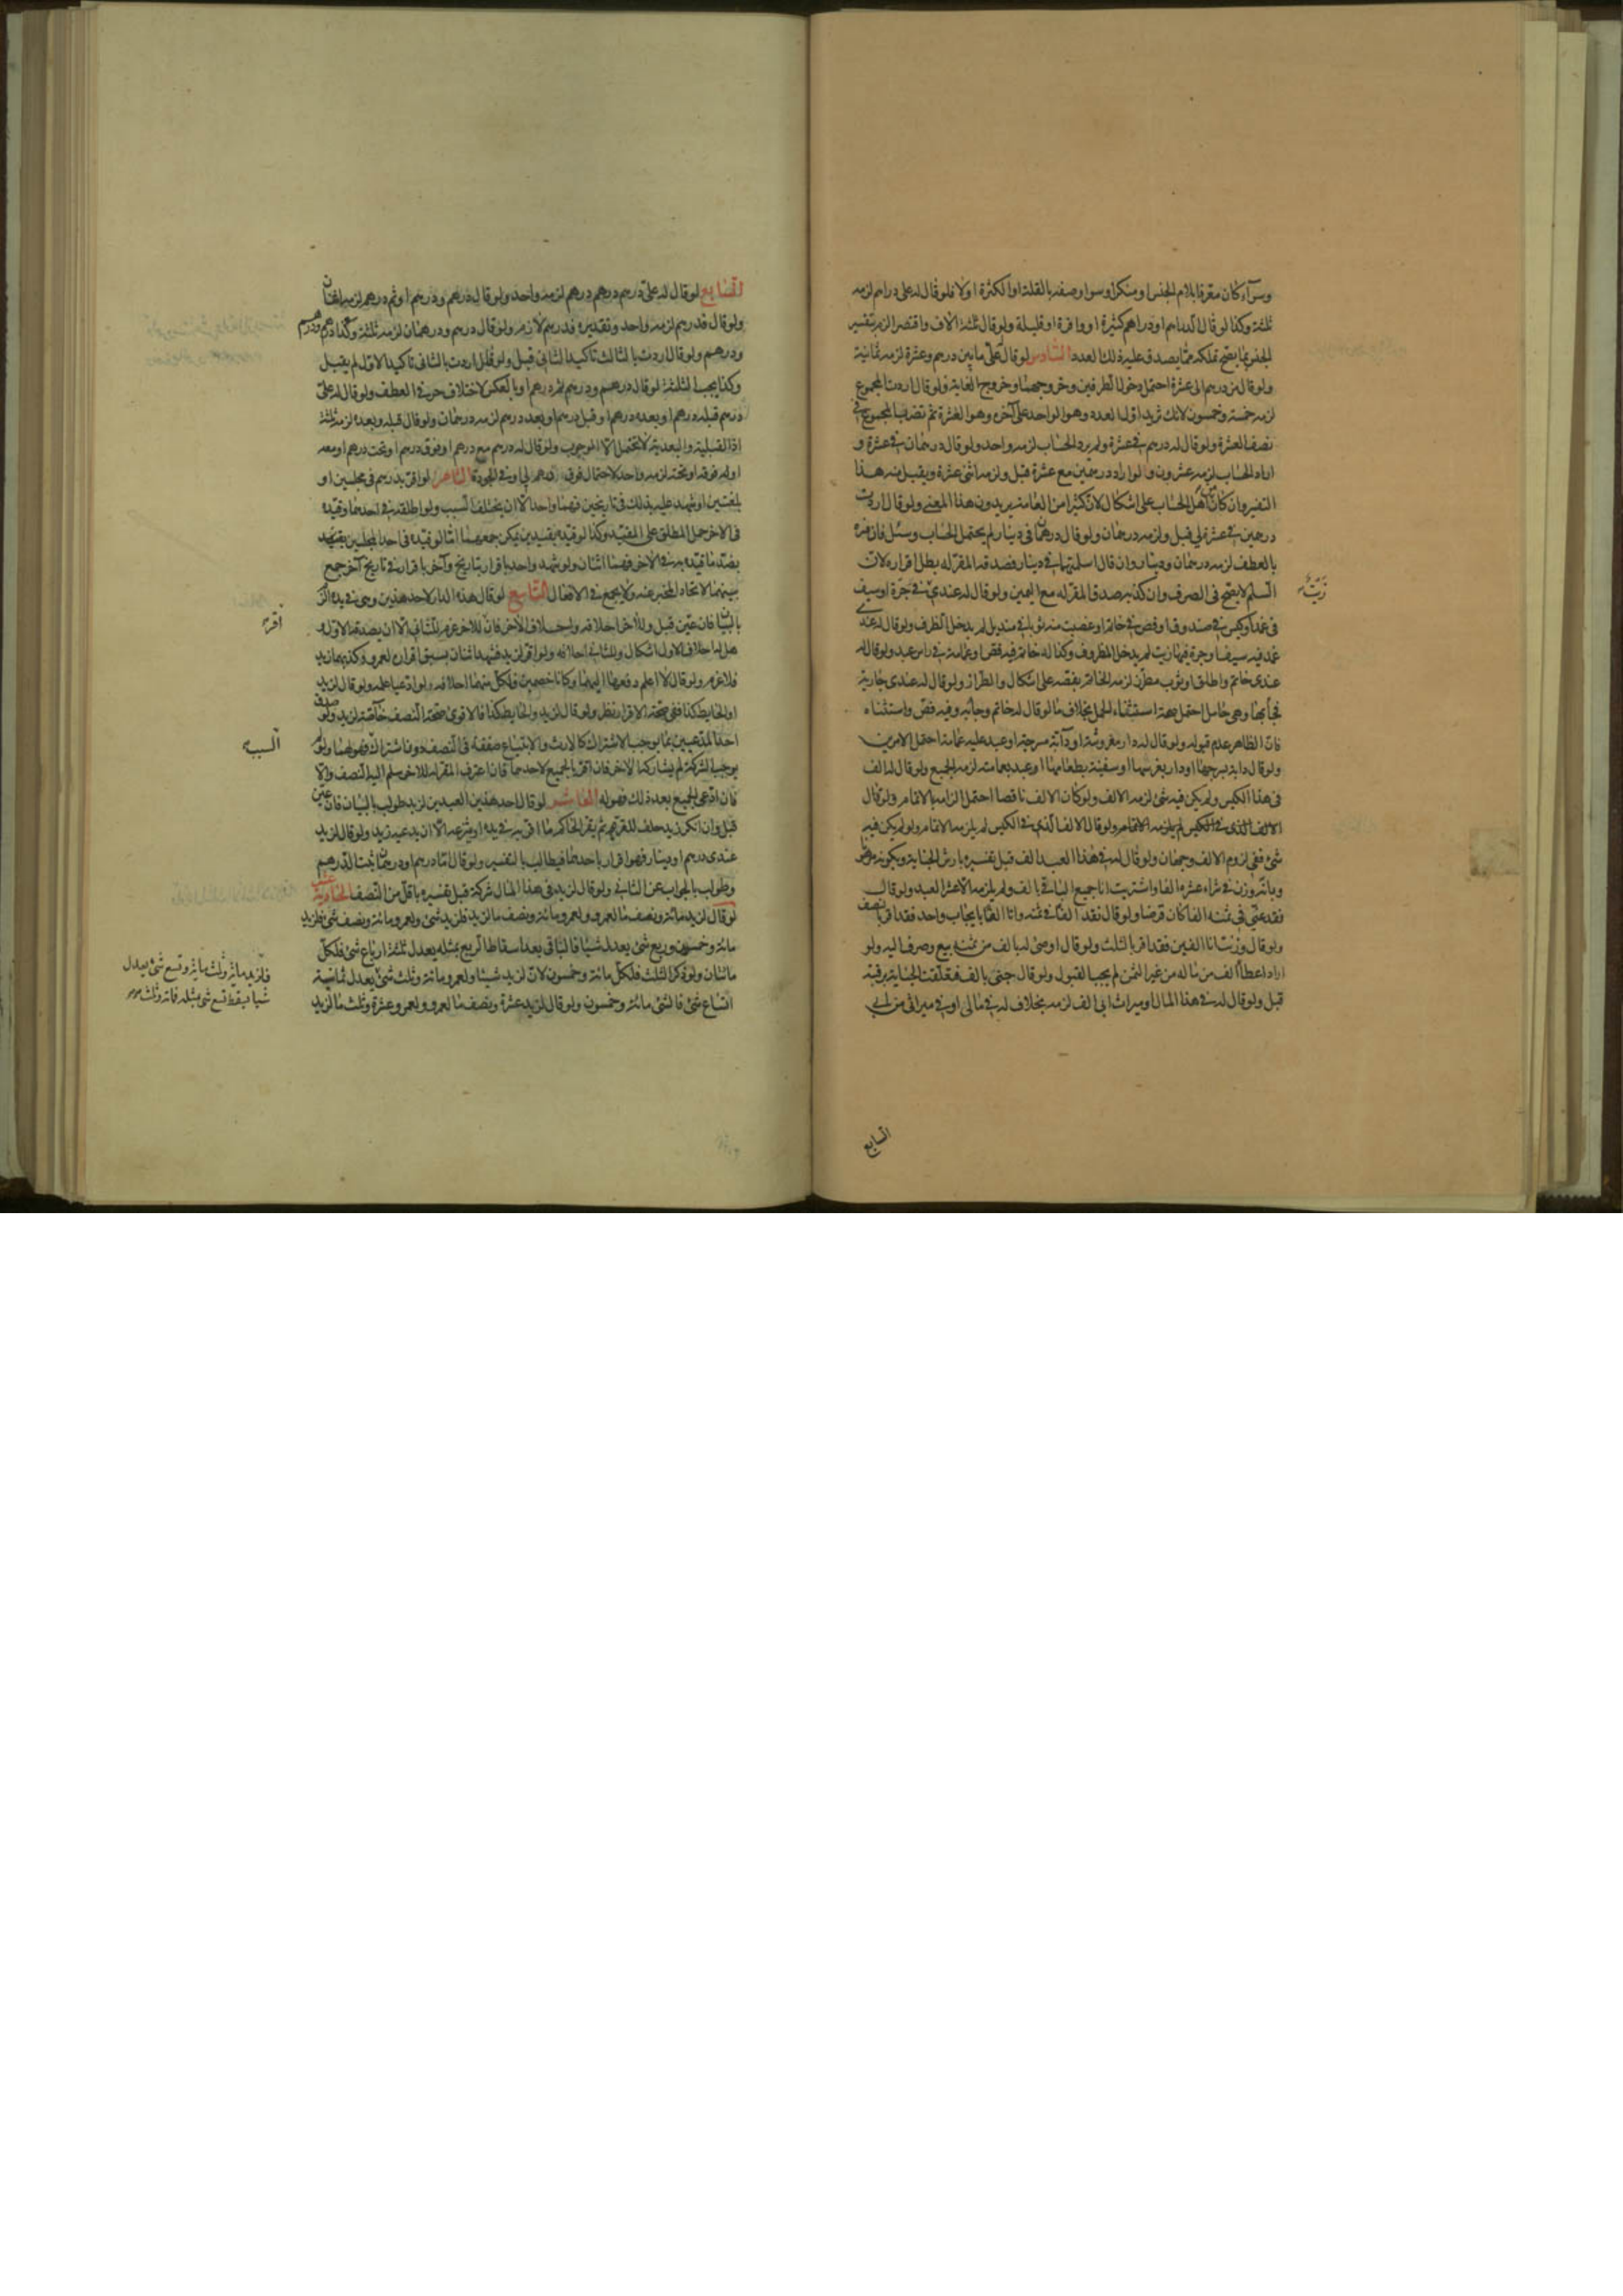 وسوآء كان معرفا بلام الجنس او منكرا وسوا وصفه بالقلة او الكثرة اولا فلو قال له على دراهم لزمه
ثلثة وكذا لو قال الدراهم او دراهم كثيرة او وافرة او قليلة ولو قال ثلثة الاف واقتصر الزم بتفسير
الجنس بما يصح تملكه مما يصدق عليه ذلك العدد السادس لو قال علىّ ما بين درهم وعشرة لزمه ثمانية
ولو قال من درهم الى عشرة احتمل دخول الطرفين وخروجهما وخروج الغاية ولو قال اردت المجموع
لزمه خمسة وخمسون لانك تزيد اول العدد وهو الواحد على آخره وهو العشرة ثم تضرب المجموع في
نصف العشرة ولو قال له درهم في عشرة ولم يرد الحساب لزمه واحد ولو قال درهمان في عشرة و
اراد الحساب لزمه عشرون ولو اراد درهمين مع عشرة قبل ولزمه اثنى عشرة ويقبل منه هذا
التفسير وان كان من اهل الحساب على اشكال لان كثيرا من العامة يريدون هذا المعنى ولو قال اردت
درهمين في عشرة لي قبل ولزمه درهمان ولو قال درهمان في دينار لم يحتمل الحساب وسئل فان فسره
بالعطف لزمه درهمان ودينار وان قال اسلمتهما في دينار فصدقه المقر له بطل اقراره لان
السلم لا يصح في الصرف وان كذبه صدق المقر له مع اليمين ولو قال له عندي زيت في جرة او سيف
في غمد او كيس في صندوق او فص في خاتم او غصبت منه ثوبا في منديل لم يدخل الظرف ولو قال له عندي
غمد فيه سيف او جرة فيها زيت لم يدخل المظروف وكذا له خاتم فيه فص او عمامة في راس عبد ولو قال له
عندى خاتم واطلق او ثوب مطرز لزمه الخاتم بفصه على اشكال والطراز ولو قال له عندى جارية
فجأ بها وهي حامل احتمل صحة استثناء الحمل بخلاف ما لو قال له خاتم وجآء به وفيه فص واستثناه
فان الظاهر عدم قبوله ولو قال له دار مفروشة او دآبة مسرجة او عبد عليه عمامة احتمل الامرين
ولو قال دابة بسرجها او دار بفرشها او سفينة بطعامها او عبد بعمامته لزمه الجميع ولو قال له الف
في هذا الكيس ولم يكن فيه شئ لزمه الالف ولو كان الالف ناقصا احتمل الزامه بالاتمام ولو قال
الالف الذي في الكيس لم يلزمه الاتمام ولو قال الالف الذي في الكيس لم يلزمه الاتمام ولو لم يكن فيه
شئ ففي لزوم الالف وجهان ولو قال له في هذا العبد الف قبل تفسيره بارش الجناية وبكونه مرهونا
وبانه وزن في شراء عشره الفا واشتريت انا جميع الباقي بالف ولم يلزمه الا عشر العبد ولو قال
نقد عنّي في ثمنه الفا كان قرضا ولو قال نقد الفا في ثمنه وانا الفا بايجاب واحد فقد اقر بالنصف
ولو قال وزنت انا الفين فقد اقر بالثلث ولو قال اوصى له بالف من ثمنه بيع وصرف اليه ولو
اراد اعطأ الف من ماله من غير الثمن لم يجب القبول ولو قال جنى بالف فتعلقت الجناية برقبته
قبل ولو قال له في هذا المال او ميراث ابى الف لزمه بخلاف له في مالى او في ميراثى من ابي
زيت
السابع
السابع لو قال له علىّ درهم درهم درهم لزمه واحد ولو قال درهم ودرهم او ثم درهم لزمه اثنان
ولو قال فدرهم لزمه واحد وتقديره فدرهم لازم ولو قال درهم ودرهمان لزمه ثلثة وكذا درهم ودرهم
ودرهم ولو قال اردت بالثالث تاكيد الثاني قبل ولو قال اردت بالثاني تاكيد الاول لم يقبل
وكذا يجب الثلثة لو قال درهم ودرهم ثم درهم او بالعكس لاختلاف حرفي العطف ولو قال له علىّ
درهم قبله درهم او بعده درهم او قبل درهم او بعد درهم لزمه درهمان ولو قال قبله وبعده لزمه ثلثة
اذ القبلية والبعدية لا تحتمل الا الوجوب ولو قال له درهم مع درهم او فوق درهم او تحت درهم او معه
او فوقه او تحته لزمه واحد لاحتمال فوق درهم لي او في الجودة الثامن لو اقر بدرهم في مجلسين او
بلغتين او شهد عليه بذلك في تاريخين فهما واحد الا ان يختلف السبب ولو اطلقه في احدهما وقيده
في الاخر حمل المطلق على المقيد وكذا لو قيده بقيدين يمكن جمعهما اما لو قيده في احد المجلسين بقيد
يضاد ما قيده به في الآخر فهما اثنان ولو شهد واحد باقرار بتاريخ وآخر باقرار في تاريخ آخر جمع
بينهما لاتحاد المخبر عنه ولا يجمع في الافعال التاسع لو قال هذه الدار لاحد هذين وهي في يده الزم
بالبيان فان عين قبل وللآخر احلافه واحلاف الآخر فان للآخر غرم للثاني الا ان يصدقه الاول و
هل له احلاف الاول اشكال وللثاني احلافه ولو اقر لزيد فشهد اثنان بسبق اقراره لعمرو وكذبهما زيد
فلا غرم ولو قال لا اعلم دفعها اليهما وكانا خصمين ولكل منهما احلافه ولو ادعيا علمه ولو قال لزيد
او الحايط كذا ففي صحة الاقرار نظر ولو قال لزيد والحايط كذا فالاقوى صحة النصف خاصة لزيد ولو صدق
احد المدعيين بما يوجب الاشتراك كالارث والابتياع صفقة في النصف دون اشتراك فهو لهما ولو لم
يوجب الشركة لم يشاركه الآخر فان اقر بالجميع لاحدهما فان اعترف المقر له للآخر سلم اليه النصف والا
فان ادعى الجميع بعد ذلك فهو له العاشر لو قال احد هذين العبدين لزيد طولب بالبيان فان عين
قبل وان انكر زيد حلف المقر ثم يقر الحاكم ما اقر به في يده او ينتزعه الا ان يدعيه زيد ولو قال لزيد
عندى درهم او دينار فهو اقرار باحدهما فيطالب بالتفسير ولو قال اما درهم او درهمان ثبت الدرهم
وطولب بالجواب عن الثاني ولو قال لزيد في هذا المال شركة قبل تفسيره باقل من النصف الحاديه عشر
لو قال لزيد مائة ونصف ما لعمرو ولعمرو مائة ونصف ما لزيد فلزيد شئ ولعمرو مائة ونصف شئ فلزيد
مائة وخمسون وربع شئ يعدل شيئا فالباقي بعد اسقاط الربع بمثله يعدل ثلثة ارباع شئ فلكل
مائتان ولو ذكر الثلث فلكل مائة وخمسون لان لزيد شيئا ولعمرو مائة وثلث شئ يعدل ثمانية
اتساع شئ فالشئ مائة وخمسون ولو قال لزيد عشرة ونصف ما لعمرو ولعمرو عشرة وثلث ما لزيد
اقر
السبب
فلزيد مائة وثلث مائة وتسع شئ يعدل
شيئا يسقط تسع شئ بمثله فمائة وثلث